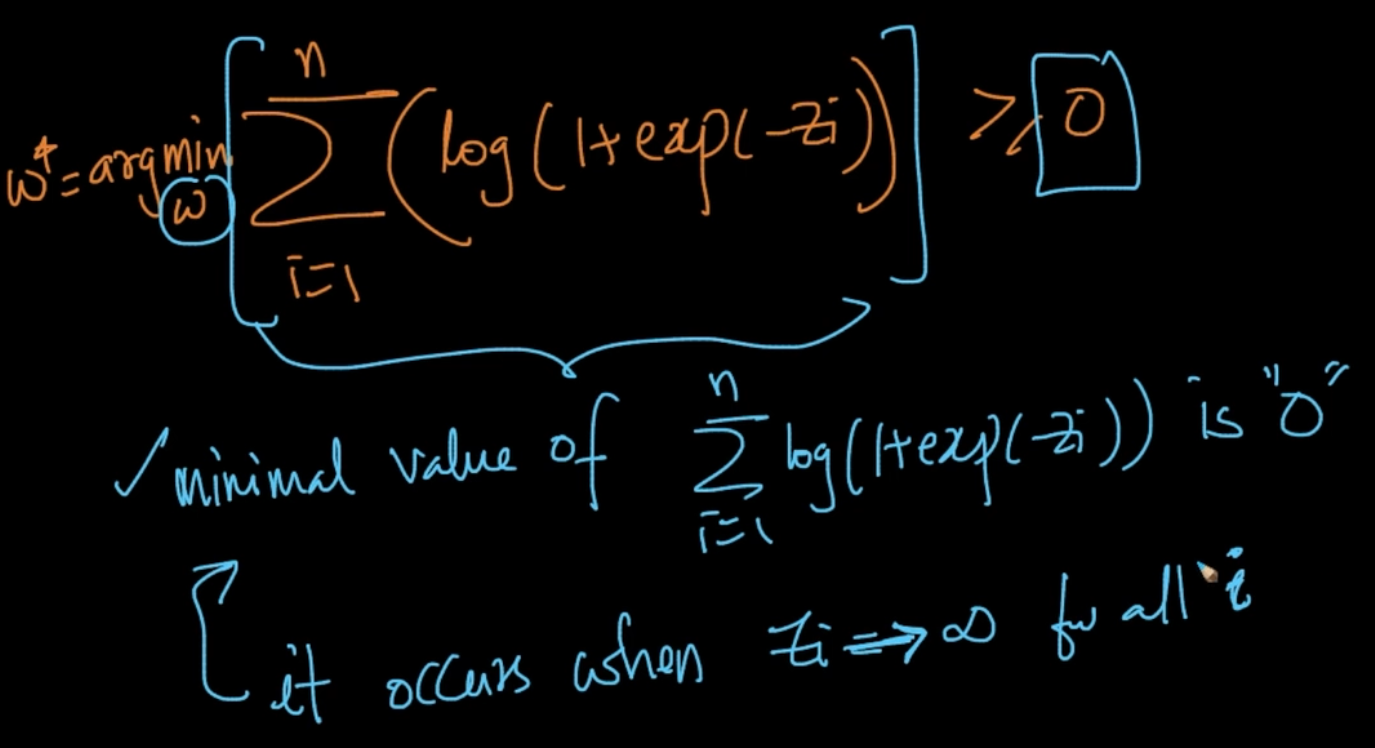 w* = argmin w [ n Σ i=1 (log(1+exp(-zi))) ] ≥ 0
✓ minimal value of n Σ i=1 log(1+exp(-zi)) is "0"
it occurs when zi → ∞ for all i